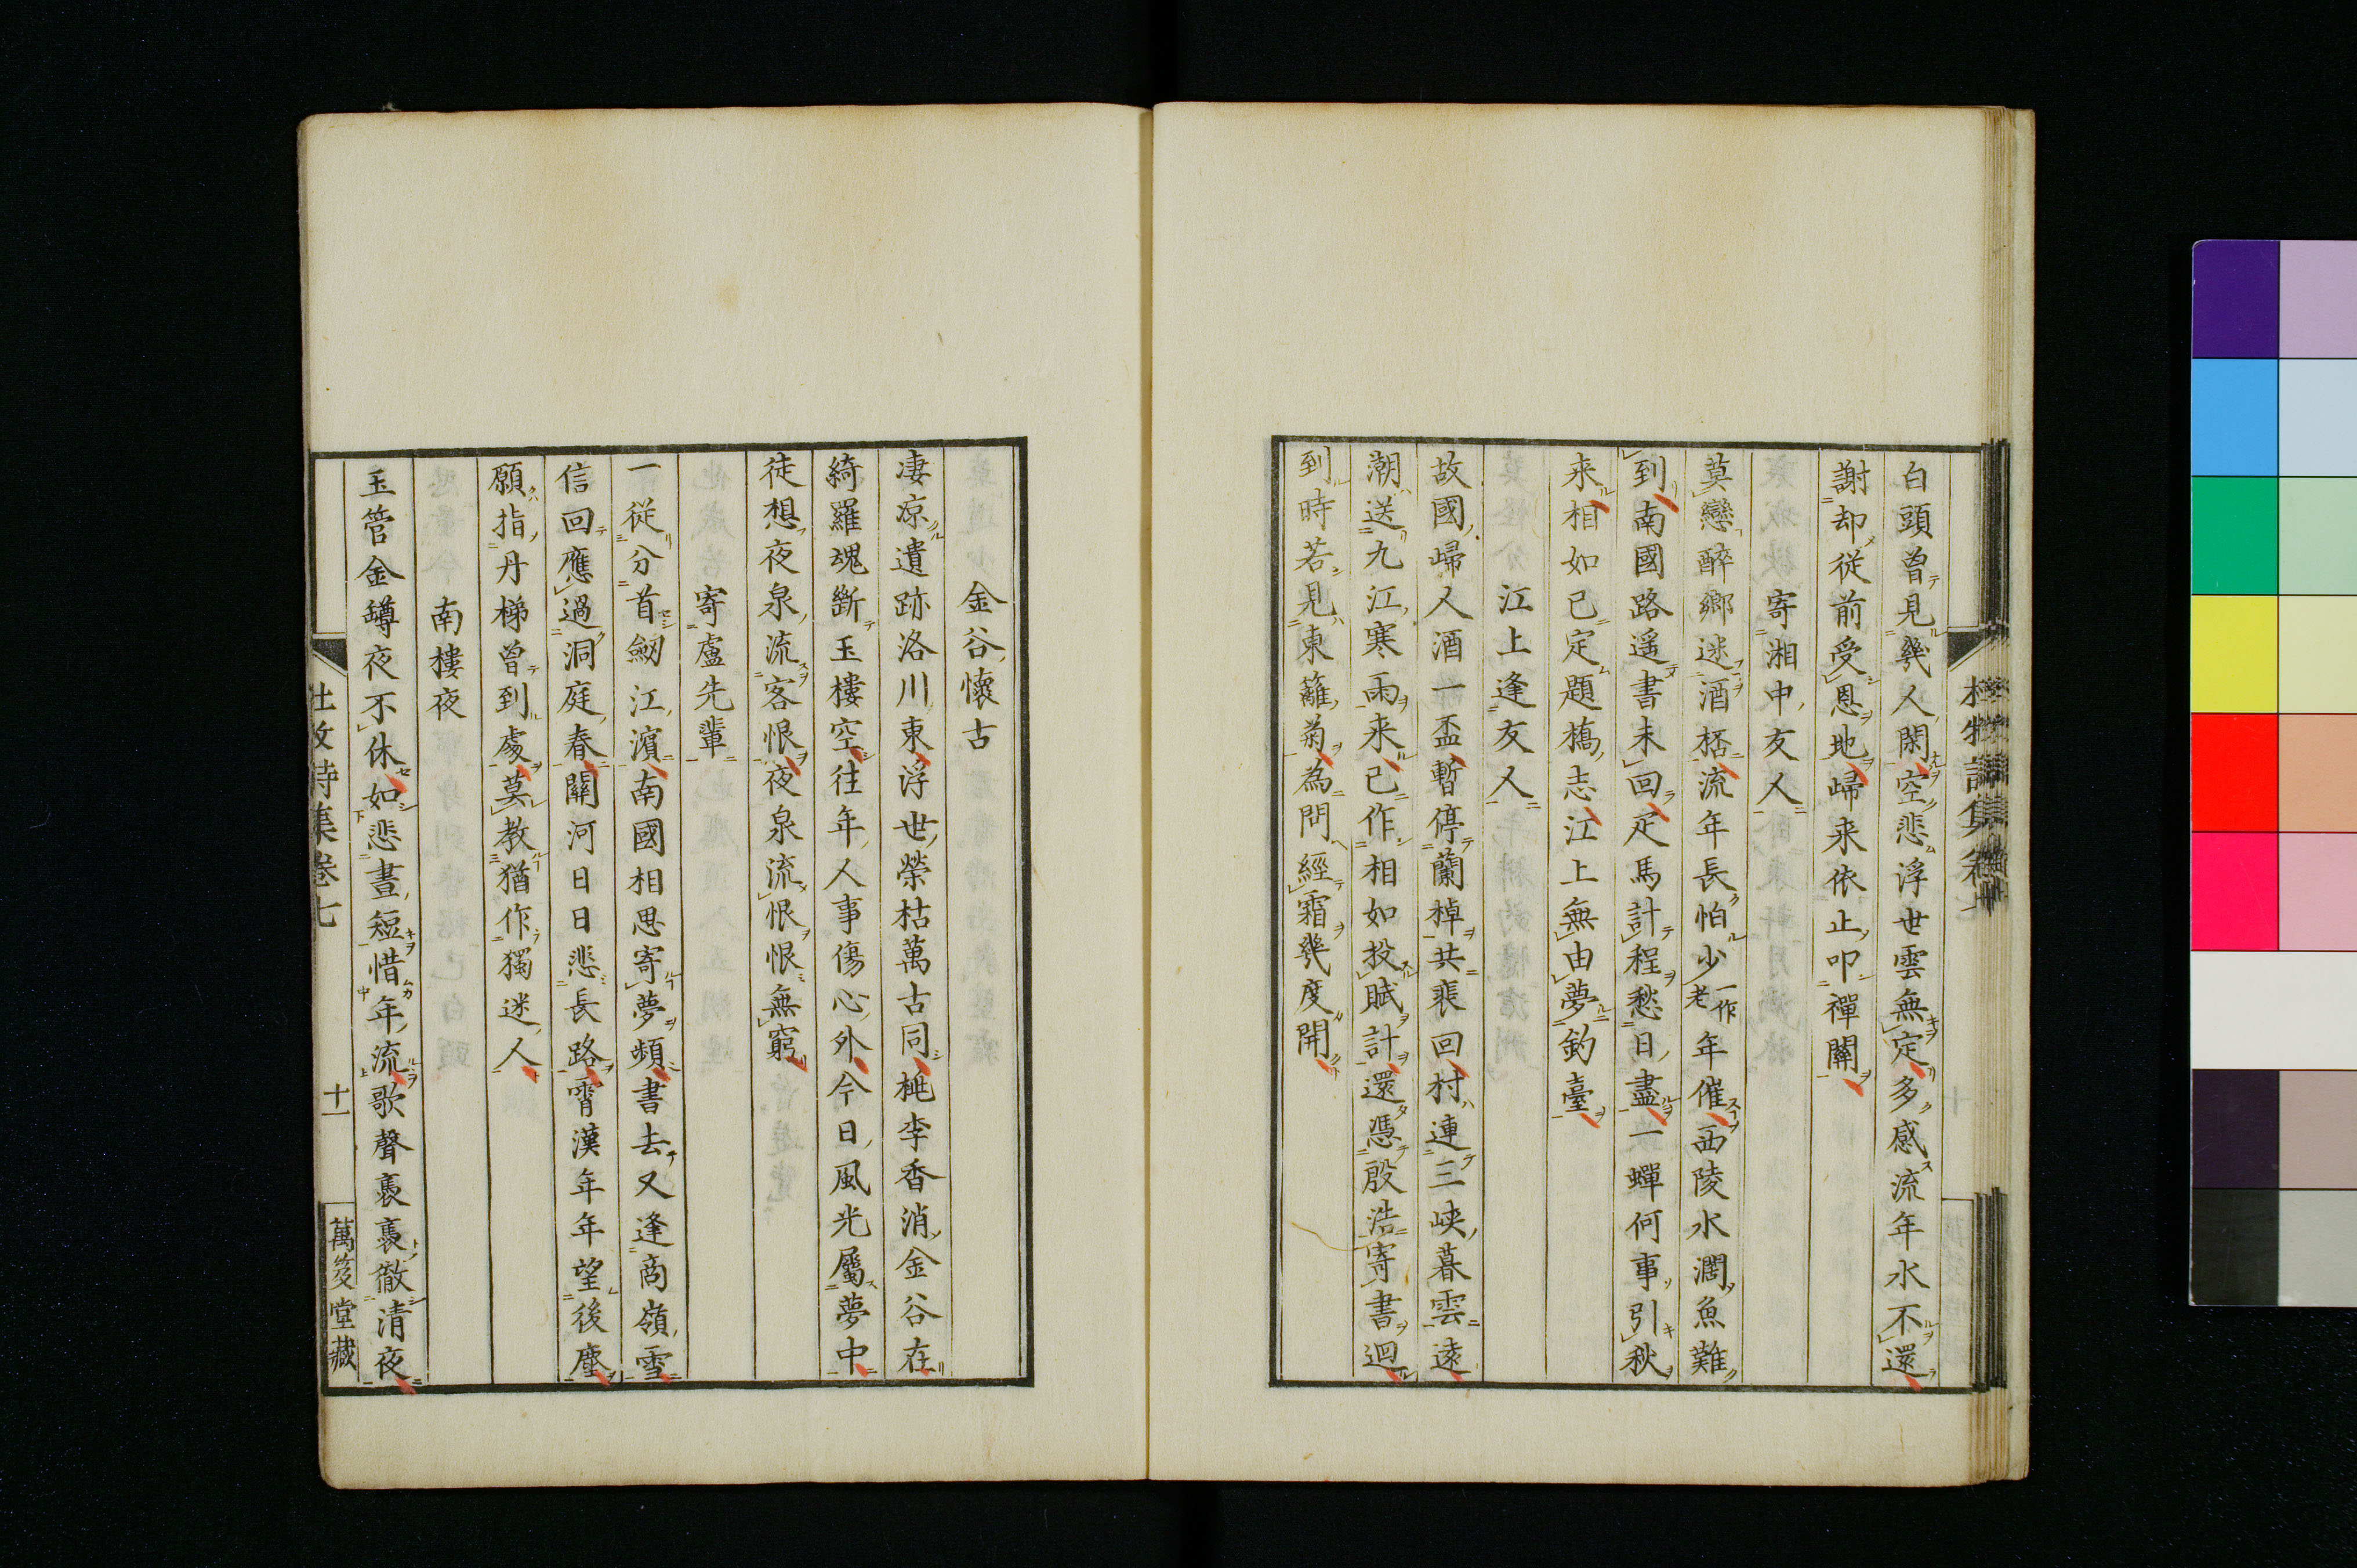 白頭曽見幾人閑空悲浮世雲無定多感流年水不還
謝却從前受恩地歸来依止叩禪關
寄湘中友人
莫戀醉鄉迷酒桮流年長怕少一作老年催西陵水濶魚難
到南國路遥書未回疋馬計程愁日盡一蟬何事引秋
来相如已定題橋志江上無由夢釣臺
江上逢友人
故國歸人酒一盃暫停蘭棹共裴回村連三峽暮雲遠
潮送九江寒雨来已作相如投賦計還憑殷浩寄書迴
到時若見東籬菊為問經霜幾度開
金谷懷古
凄凉遺跡洛川東浮世榮枯萬古同桃李香消金谷在
綺羅魂斷玉樓空往年人事傷心外今日風光屬夢中
徒想夜泉流客恨夜泉流恨恨無窮
寄盧先輩
一從分首劒江濵南國相思寄夢頻書去又逢商嶺雪
信回應過洞庭春關河日日悲長路霄漢年年望後塵
願指丹梯曽到處莫教猶作獨迷人
南樓夜
玉管金罇夜不休如悲晝短惜年流歌聲裊裊徹清夜
杜牧詩集卷七
十一
萬笈堂藏